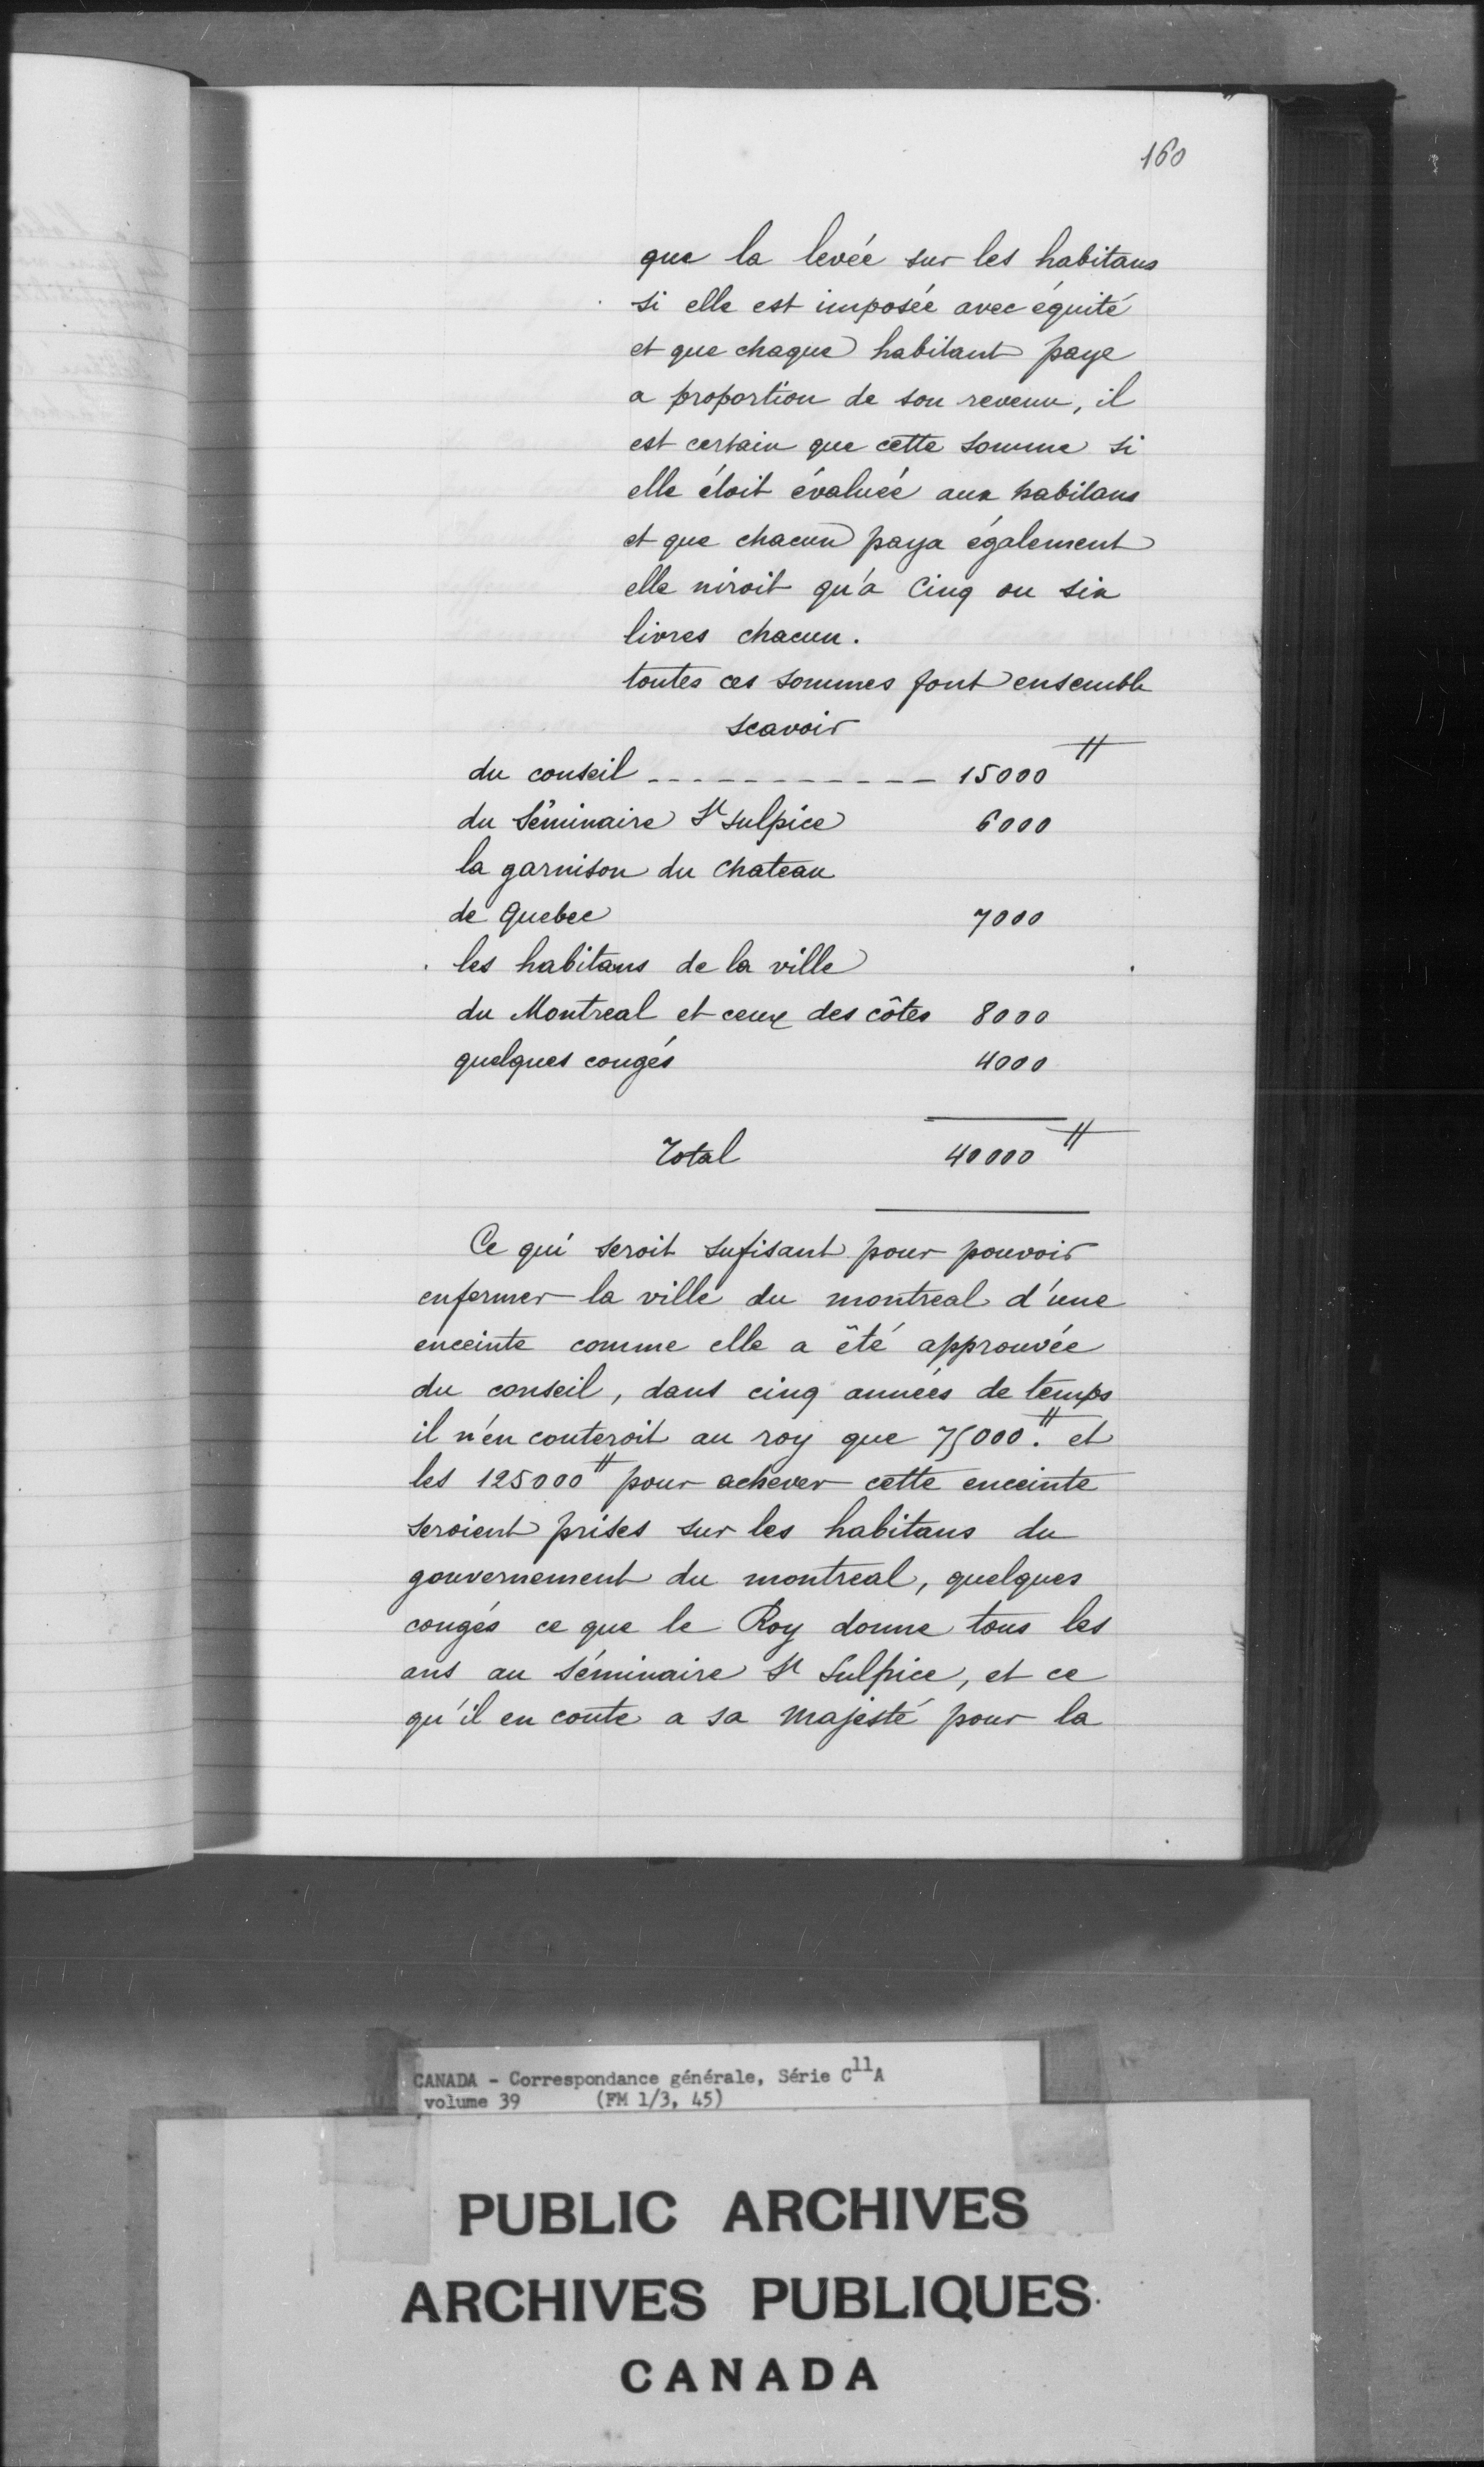 160
que la levée sur les habitans
si elle est imposée avec équité
et que chaque habitant paye
a proportion de son revenu, il
est certain que cette somme si
elle étoit évaluée aux habitans
et que chacun paya également
elle niroit qu'à Cinq ou six
livres chacun.
toutes ces sommes font ensemble
scavoir
du conseil ------------ 15000 ⁕
du Séminaire St Sulpice 6000
la garnison du Chateau
de Quebec 7000
les habitans de la ville
du Montreal et ceux des côtes 8000
quelques congés 4000
Total 40000 ⁕
Ce qui seroit sufisant pour pouvoir
enfermer la ville du montreal d'une
enceinte comme elle a été approuvée
du conseil, dans cinq années de temps
il n'en couteroit au roy que 75000.⁕ et
les 125000⁕ pour achever cette enceinte
seroient prises sur les habitans du
gouvernement du montreal, quelques
congés ce que le Roy donne tous les
ans au Séminaire St Sulpice, et ce
qu'il en coute a sa Majesté pour la
CANADA - Correspondance générale, Série C11A
volume 39 (FM 1/3, 45)
PUBLIC ARCHIVES
ARCHIVES PUBLIQUES
CANADA